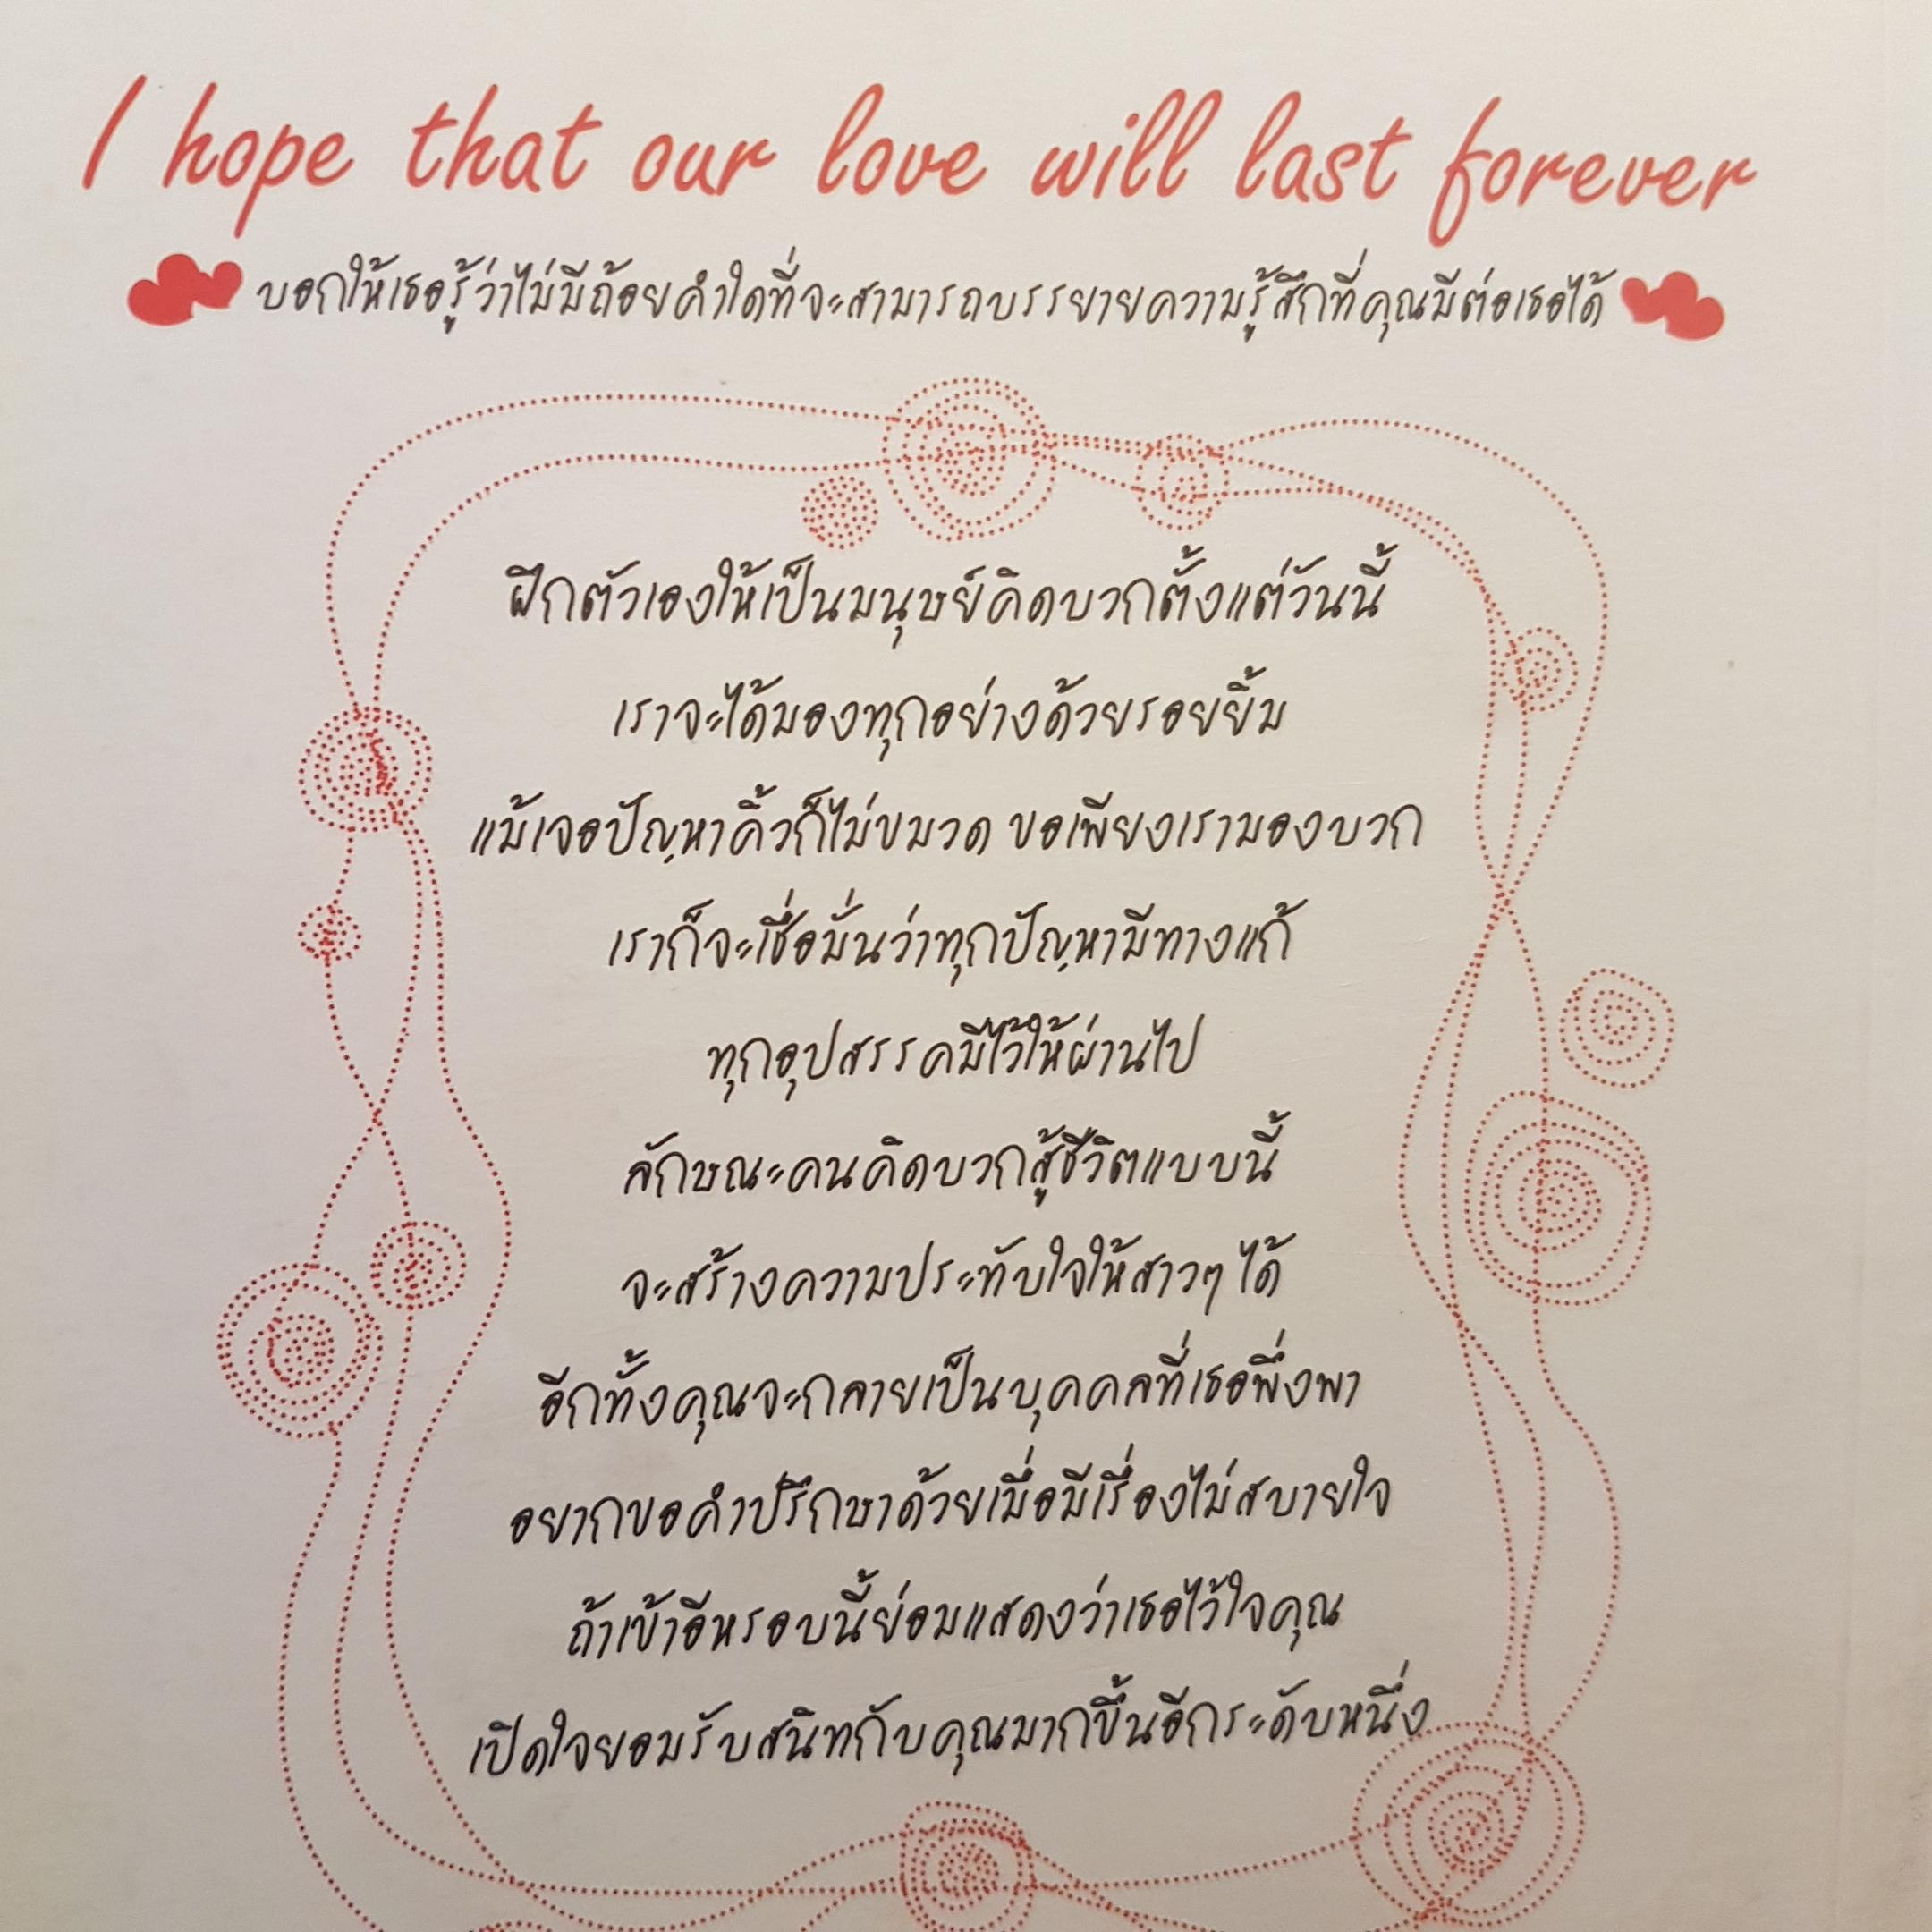 I hope that our love will last forever
บอกให้เธอรู้ว่าไม่มีถ้อยคำใดที่จะสามารถบรรยายความรู้สึกที่คุณมีต่อเธอได้
ฝึกตัวเองให้เป็นมนุษย์คิดบวกตั้งแต่วันนี้
เราจะได้มองทุกอย่างด้วยรอยยิ้ม
แม้เจอปัญหาคิ้วก็ไม่ขมวด ขอเพียงเรามองบวก
เราก็จะเชื่อมั่นว่าทุกปัญหามีทางแก้
ทุกอุปสรรคมีไว้ให้ผ่านไป
ลักษณะคนคิดบวกสู้ชีวิตแบบนี้
จะสร้างความประทับใจให้สาวๆ ได้
อีกทั้งคุณจะกลายเป็นบุคคลที่เธอพึ่งพา
อยากขอคำปรึกษาด้วยเมื่อมีเรื่องไม่สบายใจ
ถ้าเข้าอีหรอบนี้ย่อมแสดงว่าเธอไว้ใจคุณ
เปิดใจยอมรับสนิทกับคุณมากขึ้นอีกระดับหนึ่ง